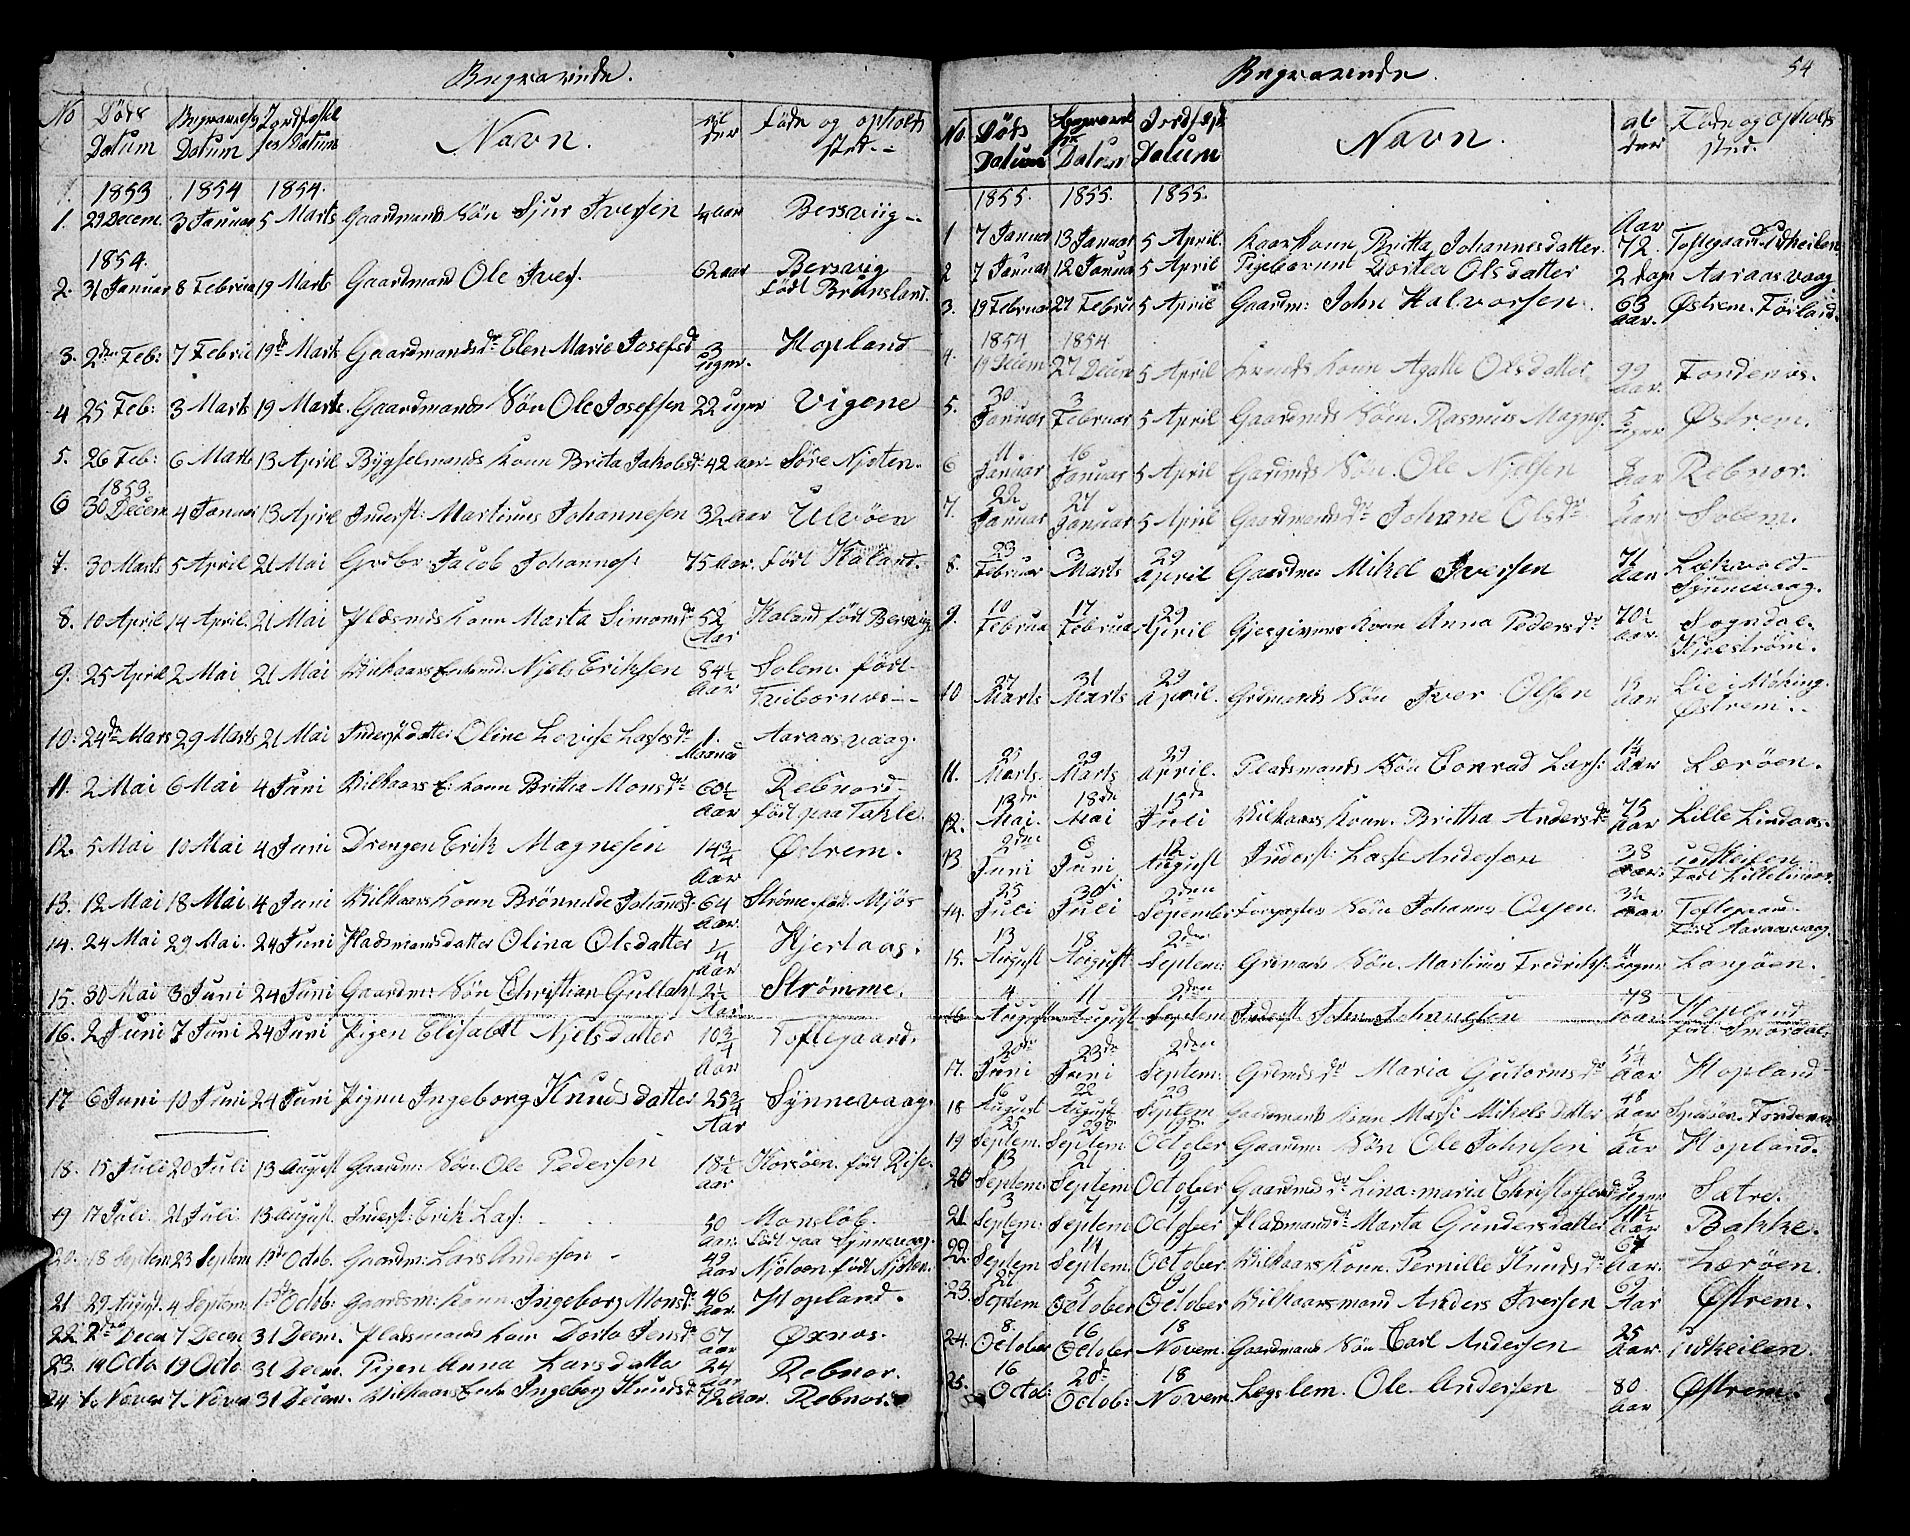 Begravede.
No Döds Datum Begravelses Datum Jordfæstelses Datum Navn. Al der Föde og opholds sted.
1853 1854 1854.
1. 29 Decem. 3 Januar 5 Marts Gaardmands Sön Sjur Iversen ¼ aar Bersviig
1854.
2. 31 Januar 8 Februa 19 Marts Gaardmand Ole Ivers. 62 aar Bersvig
födt Brunsland.
3. 2den Feb: 7 Febru 19de Marts Gaardmandsdr Elen Marie Josefsdr 3 uger. Hopland
4 25 Feb: 3 Marts 19 Marts. Gaardmands Sön Ole Josefsen 22 uger Vigene
5. 26 Feb: 6 Marts 13 April Bÿgselmands Kone Brita Jakobsdr 42 aar Söre Njöten.
1853.
6 30 Decem 4 Januar 13 April Inderst: Martinus Johannesen 32 aar Ulvöen
7. 30 Marts 5 April 21 Mai Grdbr Jacob Johannes: 75 Aar. födt Kaland.
8. 10 April 14 April. 21 Mai Pladsmds Kone Marta Simonsdr 52 Aar Kaland födt Bersvig
9. 25 April 2 Mai 21 Mai Vilkaars Enkemd: Njels Eriksen 84½ Aar Solem. födt
Tribornes
10: 24de Mars 29 Marts 21 Mai Inderst datter Oline Lovise Lassesdr 1. Maaned Aaraasvaag.
11. 2 Mai 6 Mai 4 Juni Vilkaars E: kone Britha Monsdr 60½ Aar Rebnord
födt paa Takle.
12. 5 Mai 10 Mai 4 Juni Drengen Erik Magnesen 14¾ Aar Östrem.
13. 12 Mai 18 Mai 4 Juni Vilkaars Kone Brönnilde Johansdr 64 Aar. Ströme. födt Mjös
14. 24 Mai 29 Mai. 24 Juni Pladsmandsdatter Olina Olsdatter ¼ Aar Hjertaas.
15. 30 Mai 3 Juni 24 Juni Gaardm: Sön Christian Gullaks 2½ Aar Strömme.
16. 2 Juni 7 Juni 24 Juni Pigen Elisabet Njelsdatter 10¾ Aar Toftegaard.
17 6 Juni 10 Juni 24 Juni Pigen Ingeborg Knudsdatter 25¾ Aar Synnevaag.
18. 15 Juli 20 Juli 13 August Gaardm: Sön. Ole Pedersen 18½ aar Korsöen. födt Rise.
19 17 Juli. 21 Juli. 13 August. Inderst: Erik Lars: 50 Aar. Monslöb.
födt paa Synnevaag.
20. 18 Septem 23 Septem 1ste Octob. Gaardm: Lars Andersen 49 Aar Njöten födt Njöten.
21 29 August. 4 Septem. 1ste Octob: Gaardm: Kone Ingeborg Monsdr 46 Aar. Hopland.
22 2den Decm 7 Decm 31 Decm. Pladsmands Kone Dorto Jensdr 67 aar Öxnes.
23. 14 Octo 19 Octo 31 Decm. Pigen Anna Larsdatter 24 Aar Rebnor.
24 1 Novem 7 Novem 31 Decm. Vilkaars Enke Ingeborg Knudsdr 72 Aar. Rebnor.
54
Begravede.
No. Döds Datum Begravelse Datum Jordfæst Datum Navn. al der Föde og opholds sted.
1855. 1855. 1855.
1 7 Januar 13 Januar 5 April. Kaarkone Britta Johannesdatter. Aar 72. Toftegaard. Udkeilen
2 7 Januar 12 Janua 5 April Pigebarnet Dortea Olsdatter 2 dage Aaraasvaag
3. 19 Februa 27 Februa 5 April Gaardm: John Halvorsen. 63 Aar. Östrem. Förland.
1854 1854
4. 19 Decem 27 Decem 5 April Kone Agatte Olsdatter Aar. Fondenes.
5. 30 Januar 3 Februar 5 April Gaardmds Sön. Rasmus Magnes. 5 uger Östrem.
6 11. Januar 16 Januar 5 April Gardmds Sön. Ole Njelsen Aar Rebnor.
7. 22 Januar 27 Januar 5 April Gaardmandsdr Johane Olsdr 5 Aar Solem.
8. 23 Februar 3 Marts 29 April Gaardm Mikel Iversen 71 Aar
Synnevaag.
9. 10 Februa 17 Februa 29 April Gjesgivers Kone Anna Pedersdr 70½ Aar. Sogndal.
Kjelström.
10 27 Marts 31 Marts 29 April. Grdmands Sön Iver Olsen 19 Aar Lie i Möking.
Östrem.
11. 25 Marts. 29 Marts 29 April. Pladsmands Sön Conrad Lars: 1¼ Aar Læröen.
12. 13de Mai. 18de Mai 15de Juli Vilkaars Kone. Britha Andersdr 75 Aar Lille Lindaas.
13. 2den Juni 6 Juni 12 August Inderst: Lasse Andersen 38 Aar. Udkeilen
Födt Lillelindaas.
14. 25 Juli 30te Juli 2den September Forpagters Sön Johannes Olsen. Aar Toftegaard.
Födt Aaraasvaag.
15. 13 August 18 August 2den Septem: Grdmands Sön. Martinus Fredriks: 11 uger Langöen.
16 4 August 11 August 2den Septem Inderst. John Johannesen 78 Aar Hopland
födt Smørdal.
17. 20de Juni 23de Juni 2den Septem: Grdmdsdr Maria Gutormsdr 5¼ Aar Hopland
18 16 August 22 August 29 Septem Gaardmands Kone Massi Mikelsdatter 48 Aar Spidsöen. Fondenes
19 25 Septem. 29de Septem 19de October Gaardm: Sön Ole Johnsen ½ Aar Hopland.
20 13 Septem. 21 Septem 19 October Gaardmdsdr Lina:maria Christoffersdr 3 uger Sætre.
21. 3 Septem: 7 Septem 19 October Pladsmandsdr Marta Gundersdatter 11½ Aar Bakke.
22. 7 Septem 14 Septem. October Vilkaars Kone. Pernille Knudsdr 67 Aar. Læröen.
23. 27 Septem 5 October 19 October Vilkaarsmand Anders Iversen 69 Aar Östrem.
24. 8. October 16 October 18 Novem. Gaardmands Sön Carl Andersen 25 Aar. Udkeilen.
25. 16 Octob: 20de Octob: 18 Novem. Lægslem. Ole Andersen 80. Aar Östrem.